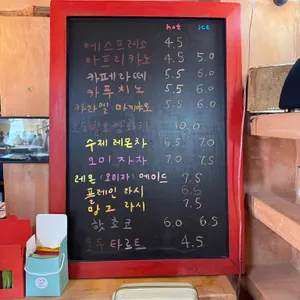 hot ice
에스프레소 4.5
아프리카노 4.5 5.0
카페라떼 5.5 6.0
카푸치노 5.5 6.0
카라멜 마끼아또 5.5 6.0
10.0
수제 레몬차 6.5 7.0
오미자차 7.0 7.5
레몬(오미자)에이드 7.5
플레인 라시 6.5
망고 라시 7.5
핫초코 6.0 6.5
호두 타르트 4.5